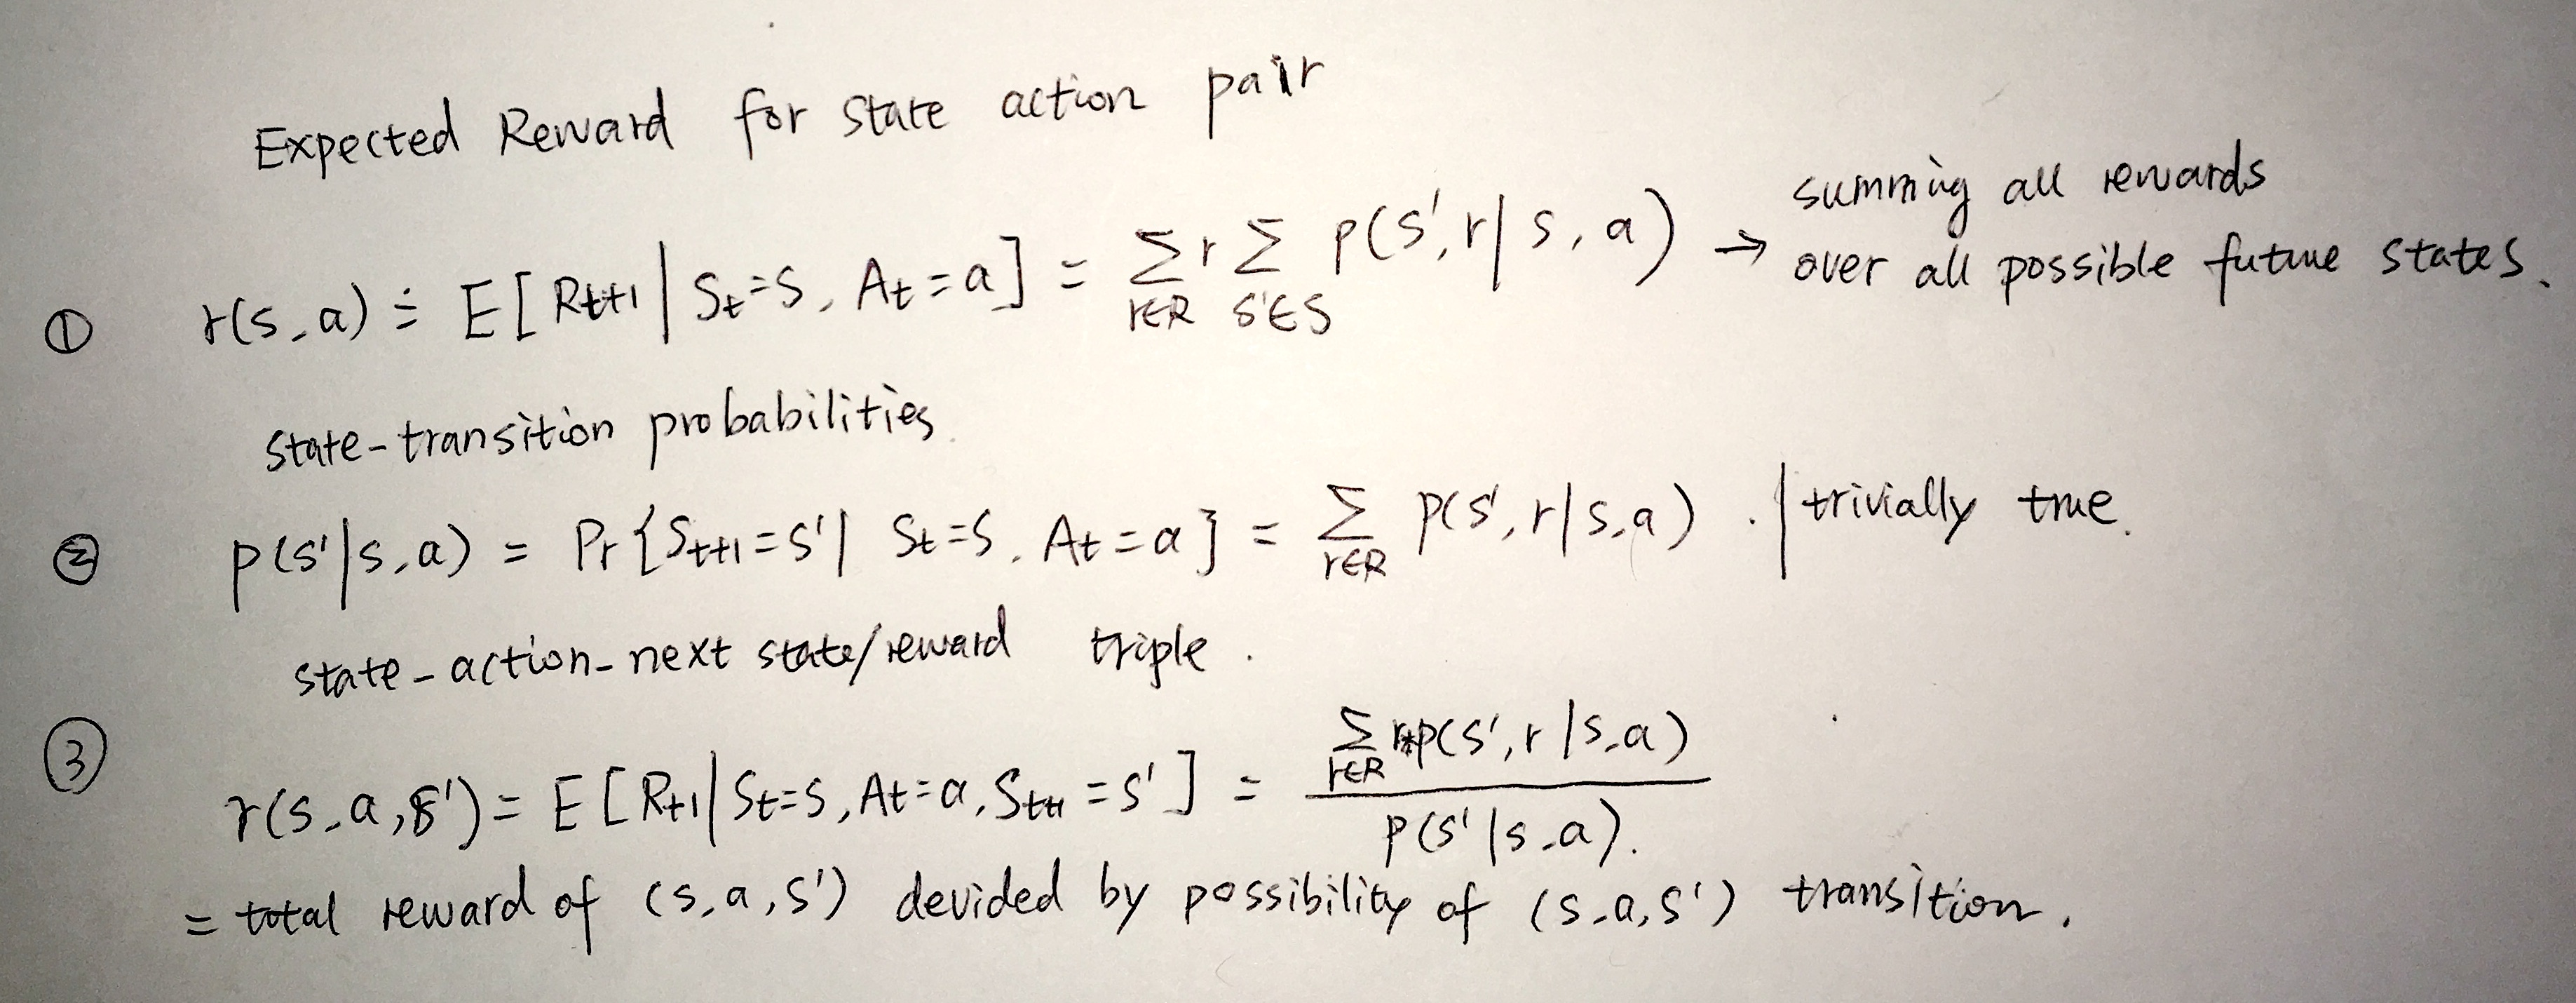 Expected Reward for state action pair
① r(s,a) ≐ E[Rt+1 | St=s, At=a] = Σ r∈R r Σ s'∈S p(s',r|s,a) → summing all rewards
over all possible future states.
state-transition probabilities
② p(s'|s,a) = Pr{St+1=s'| St=s, At=a} = Σ r∈R p(s',r|s,a) . | trivially true.
state-action-next state/reward triple.
③ r(s,a,s') = E[Rt+1|St=s,At=a,St+1=s'] = Σ r∈R r*p(s',r|s,a)
p(s'|s,a).
= total reward of (s,a,s') devided by possibility of (s,a,s') transition.